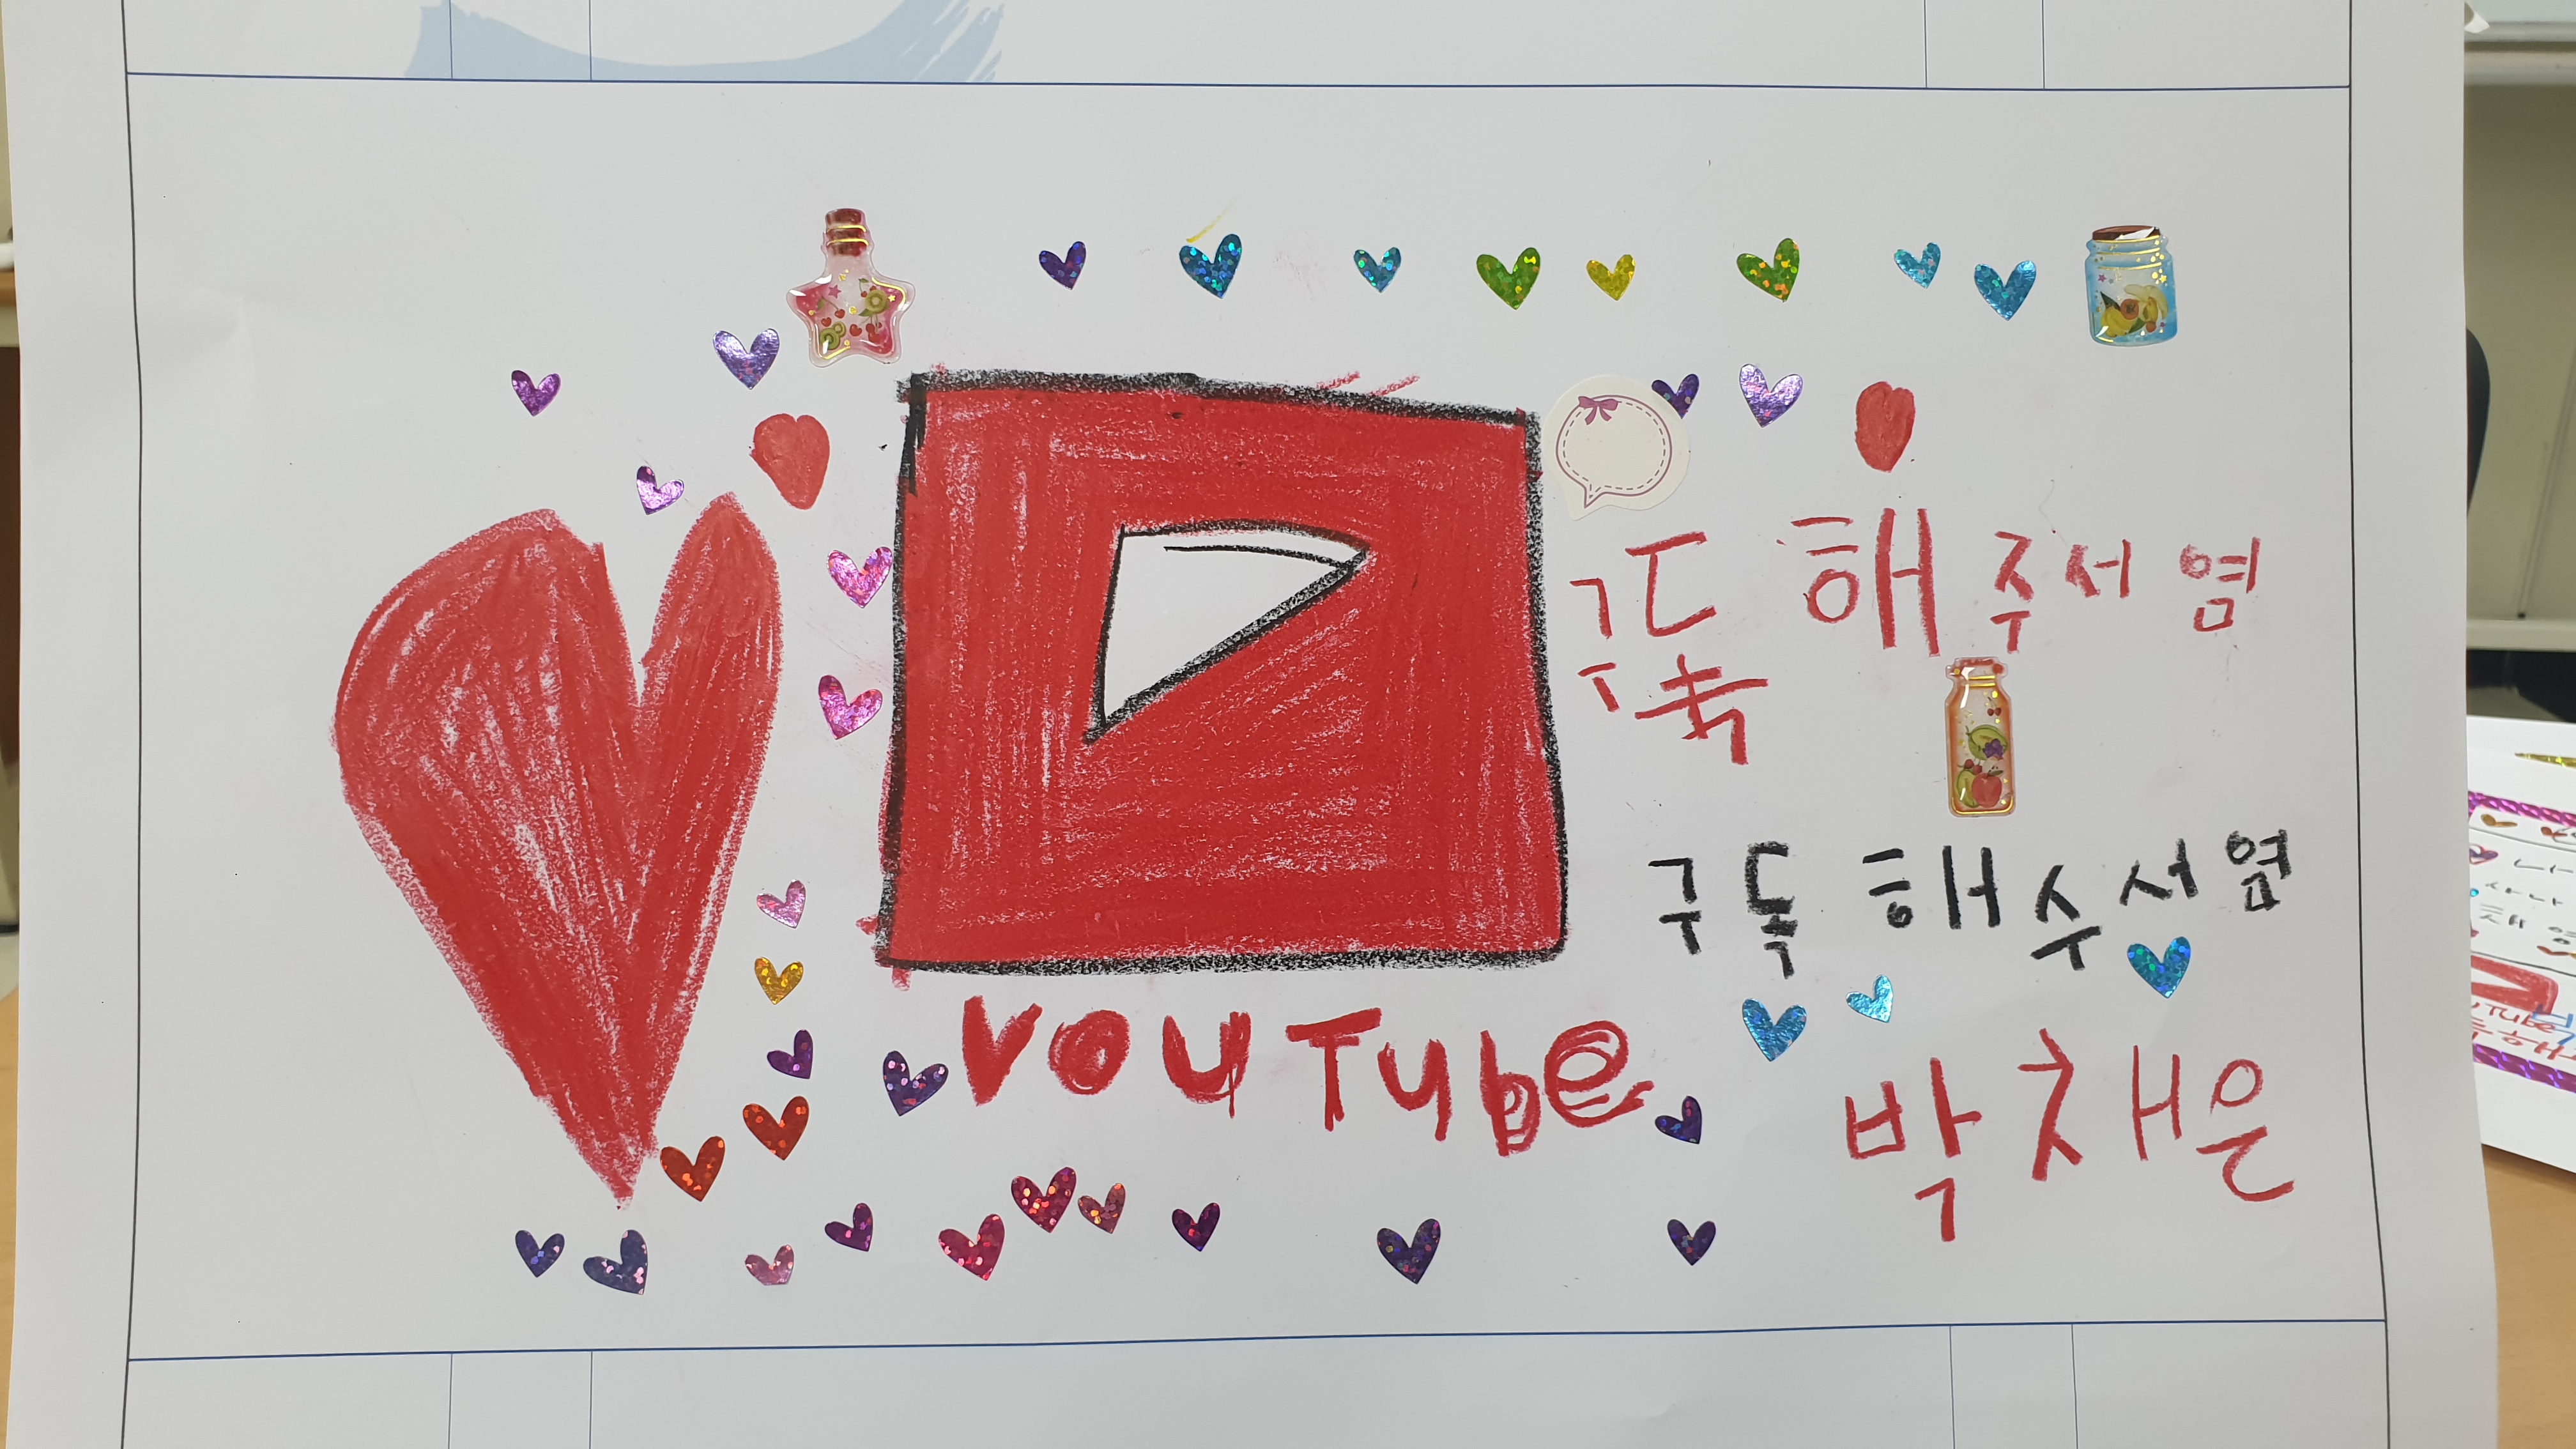 구독 해 주서염
구독 해 수서염
YOUTube
박채은